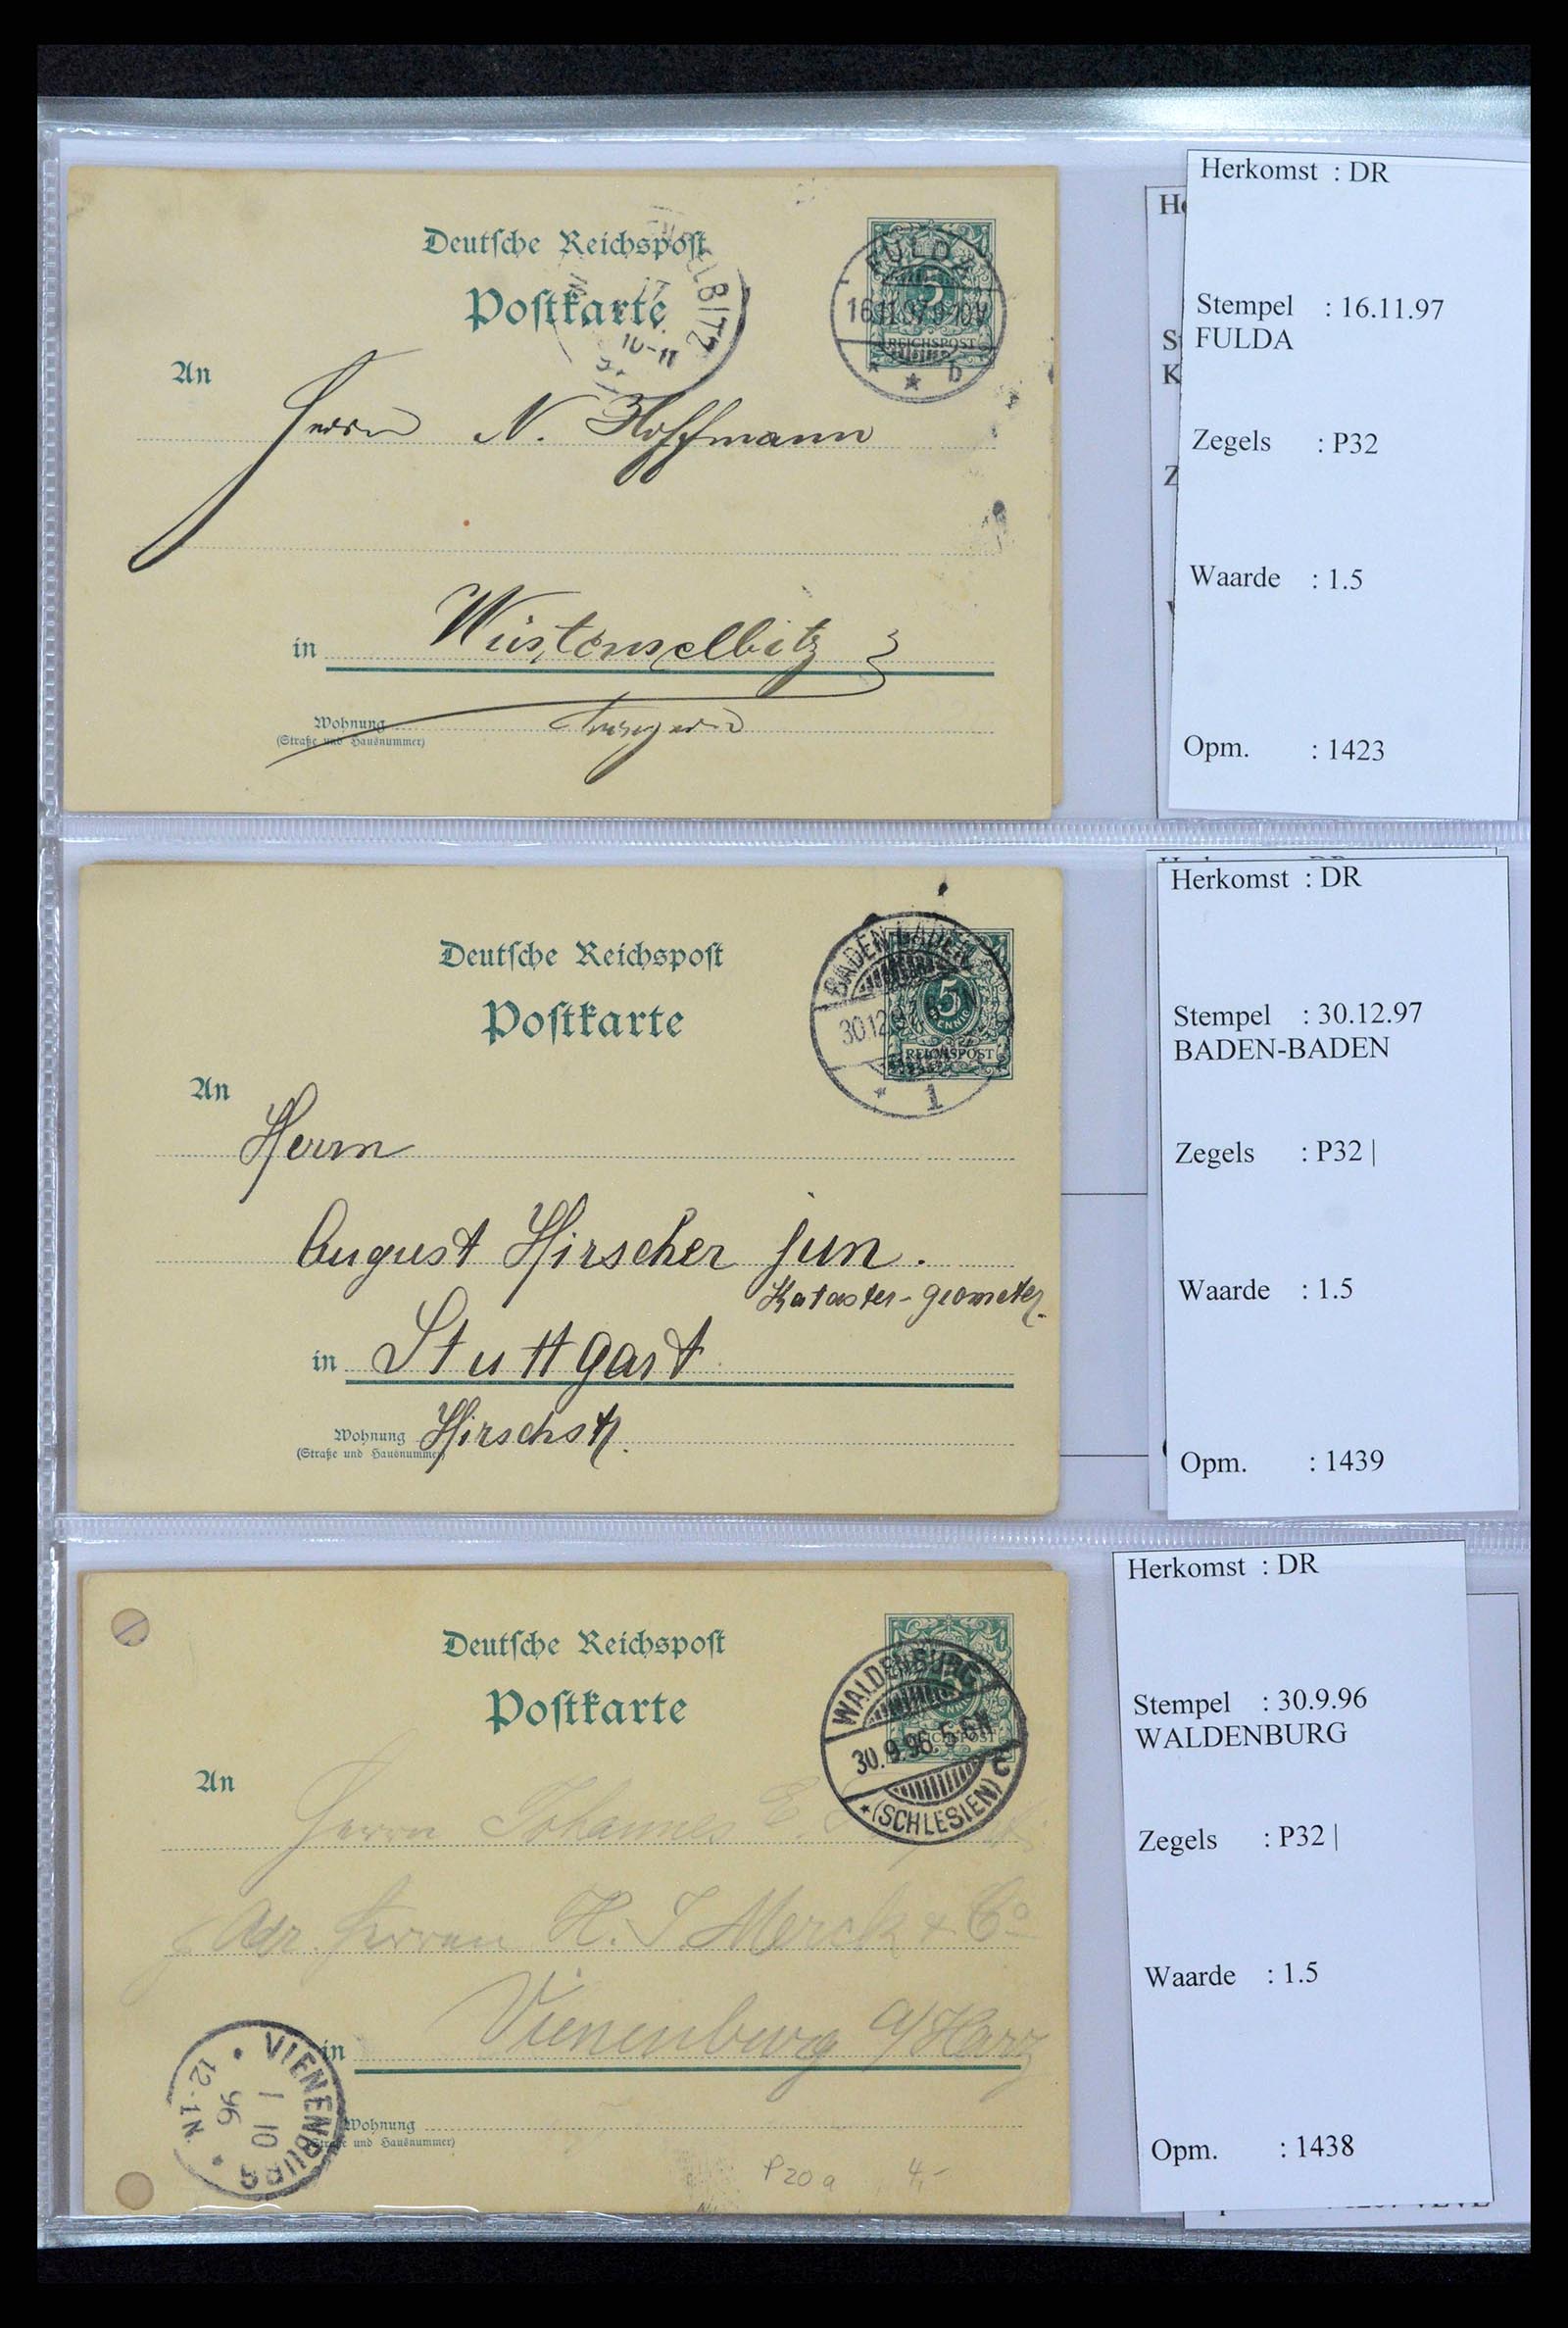 Deutsche Reichspost
Postkarte
An
Herrn N. Hoffmann
in Wüstenselbitz
Wohnung
(Straße und Hausnummer)
FULDA
16.11.97 9-10V
* * b
5
REICHSPOST
LBITZ
10-11
Herkomst : DR
Stempel : 16.11.97
FULDA
Zegels : P32
Waarde : 1.5
Opm. : 1423
Deutsche Reichspost
Postkarte
An
Herrn
August Hirscher jun.
Kataster-geometer.
in Stuttgart
Wohnung Hirschstr.
(Straße und Hausnummer)
BADEN-BADEN
30.12.
* 1
5
PFENNIG
REICHSPOST
Herkomst : DR
Stempel : 30.12.97
BADEN-BADEN
Zegels : P32 |
Waarde : 1.5
Opm. : 1439
Deutsche Reichspost
Postkarte
An
Herrn Johannes E.
Adr. Herren H. J. Merck & Co
in Vienenburg a/Harz
Wohnung
(Straße und Hausnummer)
WALDENBURG
30.9.96 5-6N
* (SCHLESIEN) c
VIENENBURG
1 10
96
12-1N.
P20a 4,-
Herkomst : DR
Stempel : 30.9.96
WALDENBURG
Zegels : P32 |
Waarde : 1.5
Opm. : 1438